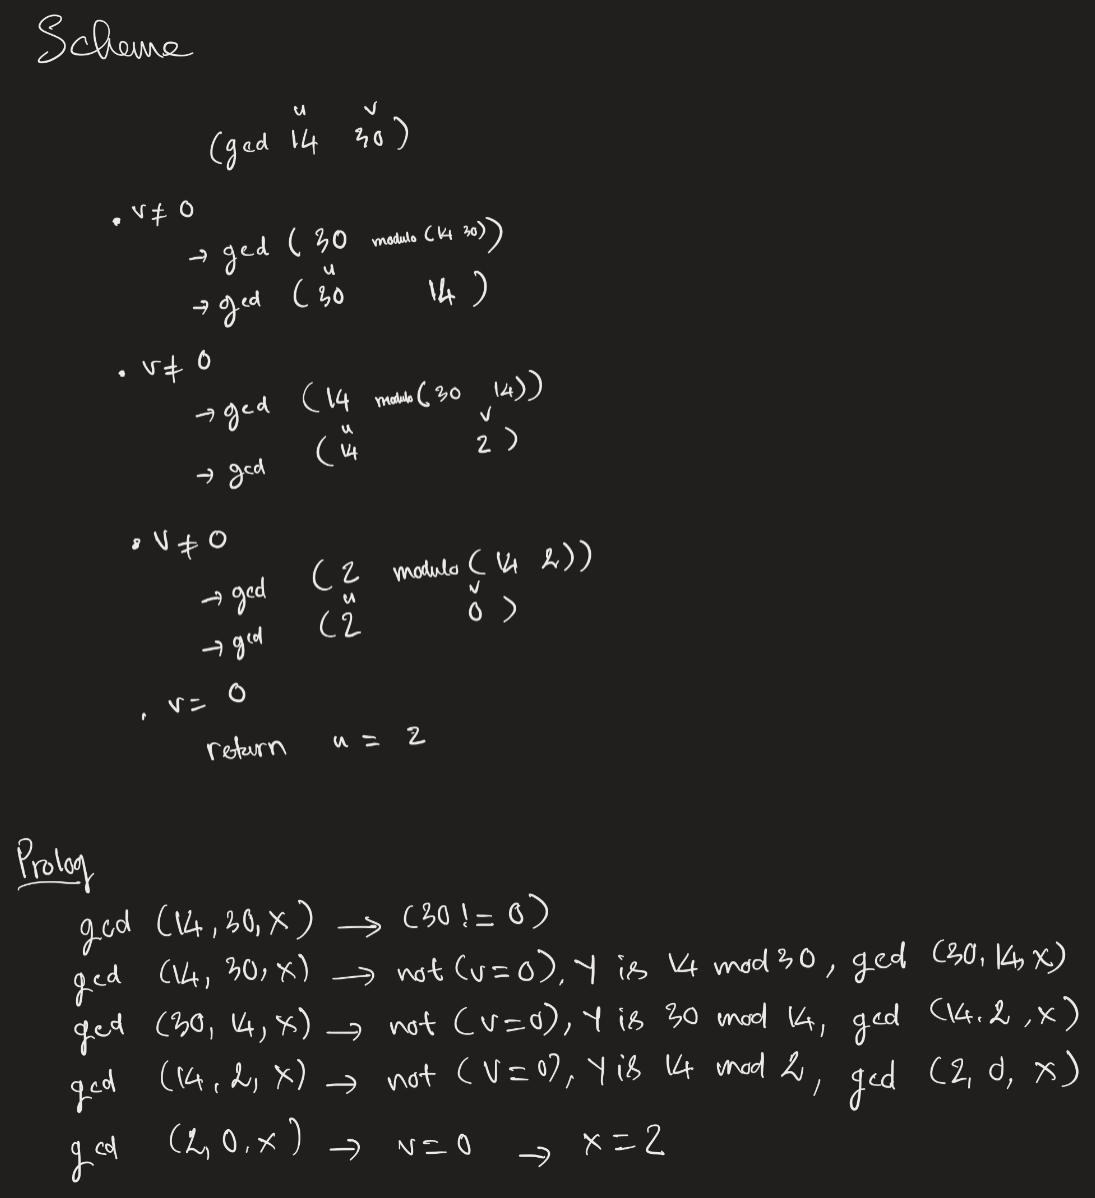 Scheme
u v
(gcd 14 30)
. v ≠ 0
→ gcd (30 modulo (14 30))
u
→ gcd (30 14)
. v ≠ 0
→ gcd (14 modulo (30 14))
u v
→ gcd (14 2)
. v ≠ 0
→ gcd (2 modulo (14 2))
u v
→ gcd (2 0)
. v = 0
return u = 2
Prolog
gcd (14, 30, x) → (30 != 0)
gcd (14, 30, x) → not (v=0), Y is 14 mod 30, gcd (30, 14, x)
gcd (30, 14, x) → not (v=0), Y is 30 mod 14, gcd (14. 2, x)
gcd (14, 2, x) → not (v=0), Y is 14 mod 2, gcd (2, 0, x)
gcd (2, 0, x) → v=0 → x=2